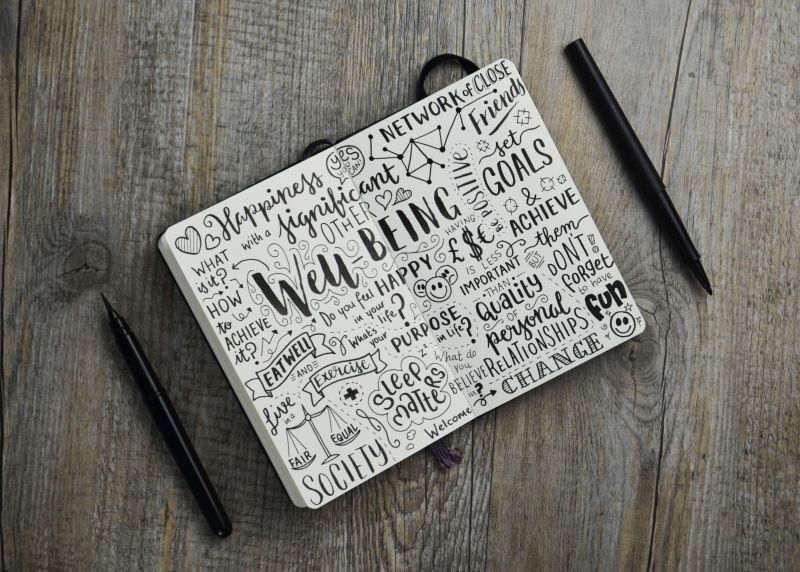 Happiness
with a significant
OTHER
YES
YOU
CAN
NETWORK of CLOSE
Friends
WHAT
is it?
HOW
to
ACHIEVE
it?
WELL-BEING
Do you feel HAPPY
in your
life?
What's your PURPOSE
in life?
BE POSITIVE
set
GOALS
&
ACHIEVE
them
HAVING
£$€
IS LESS
IMPORTANT
THAN
BUT
DON'T!
forget
to have
fun
Quality
of
personal
RELATIONSHIPS
EAT WELL
AND
Exercise
Sleep
matters
Z
What do
you
BELIEVE
in?
Welcome
CHANGE
Live
in a
FAIR
EQUAL
SOCIETY